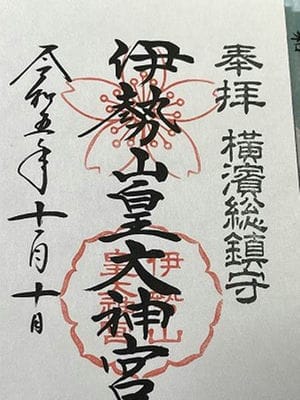 奉拝 横濱総鎮守
伊勢山皇大神宮
令和五年十一月十日
伊勢山
皇大神宮